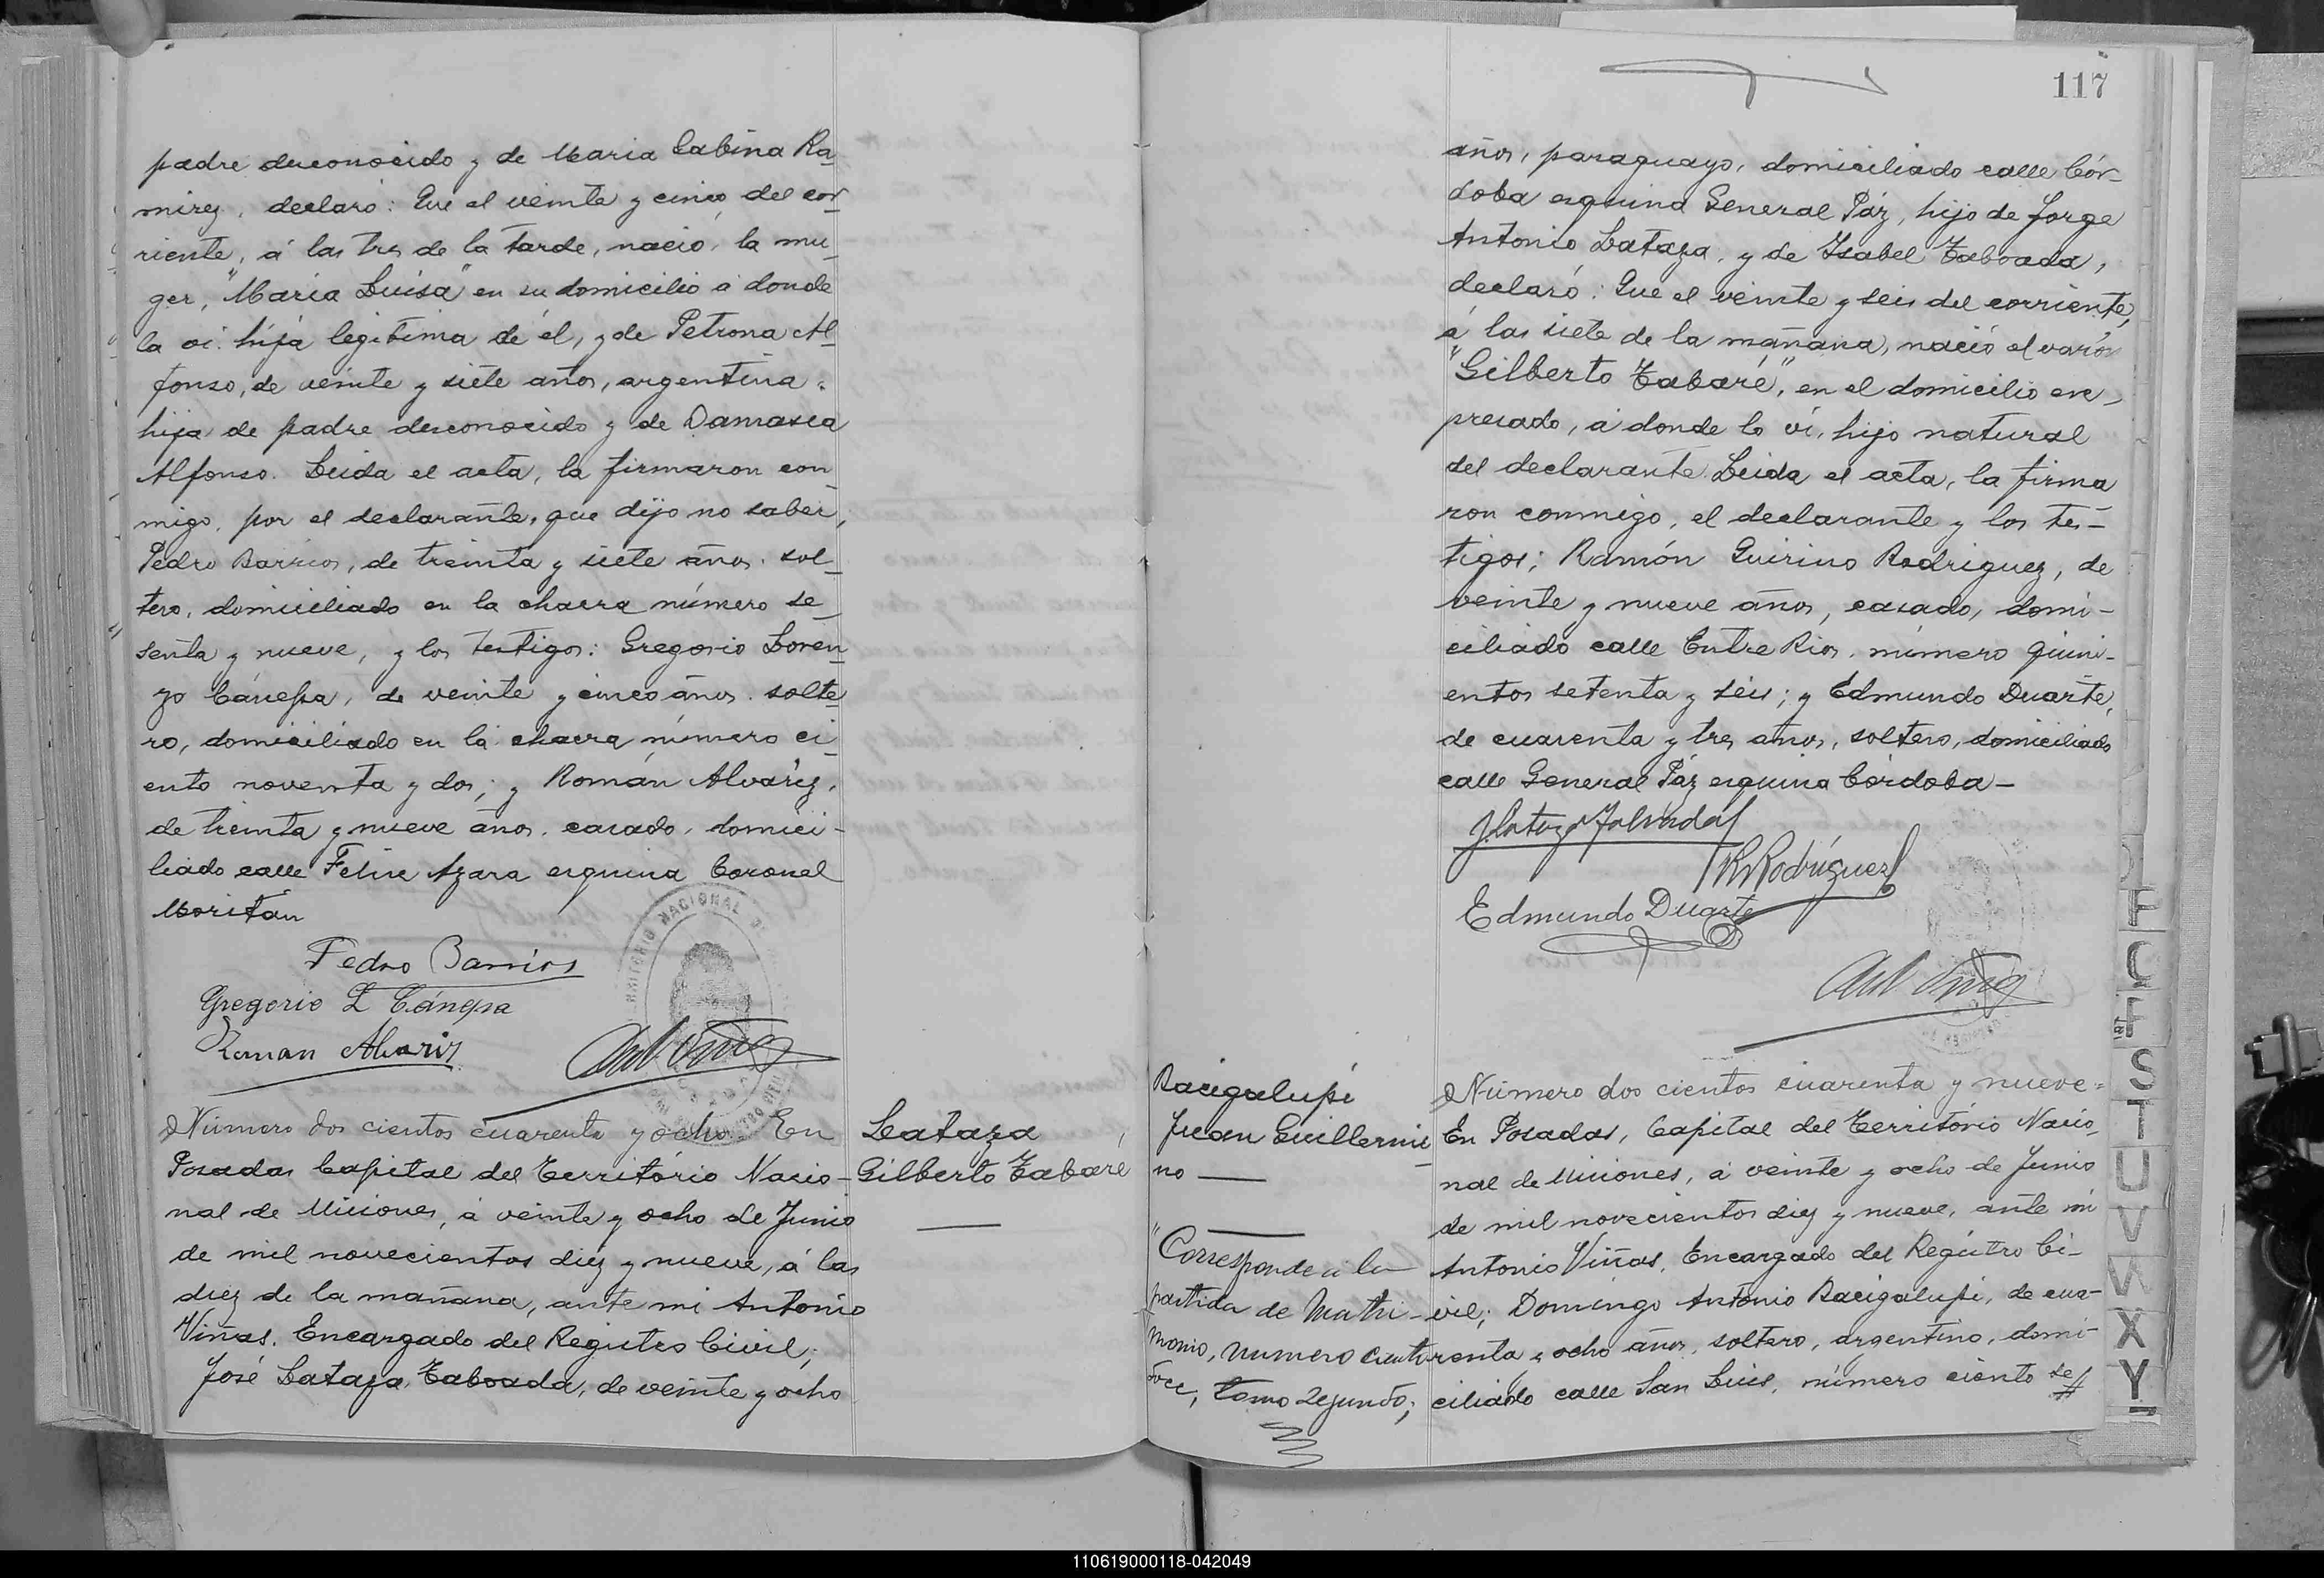 padre desconocido y de Maria Sabina Ra_
mirez, declaró: Que el veinte y cinco del cor_
riente, á las tres de la tarde, nació, la mu_
ger, "Maria Luisa" en su domicilio á donde
la ví. hija legítima de él, y de Petrona Al_
fonso, de veinte y siete años, argentina,
hija de padre desconocido y de Damasea
Alfonso. Leida el acta, la firmaron con_
migo, por el declarante, que dijo no saber,
Pedro Barrios, de treinta y siete años. sol_
tero, domiciliado en la chacra número se_
senta y nueve, y los testigos: Gregorio Loren_
zo Cánepa, de veinte y cinco años. solte_
ro, domiciliado en la chacra número ci_
ento noventa y dos; y Román Alvarez,
de treinta y nueve años, casado, domici-
liado calle Felix Azara esquina Coronel
Moritán
Pedro Barrios
Gregorio L Cánepa
Roman Alvariz
Número dos cientos cuarenta y ocho. En
Posadas Capital del Território Nacio-
nal de Misiones, á veinte y ocho de Junio
de mil novecientos diez y nueve, á las
diez de la mañana, ante mi Antonio
Viñas, Encargado del Registro Civil;
José Lataza Taboada, de veinte y ocho
Lataza
Gilberto Tabaré
117
años, paraguayo, domiciliado calle Cór-
doba esquina General Páz, hijo de Jorge
Antonio Lataza, y de Isabel Taboada,
declaró: Que el veinte y seis del corriente,
á las siete de la mañana, nació el varón
"Gilberto Tabaré", en el domicilio ex-
presado, á donde lo ví, hijo natural
del declarante. Leida el acta, la firma_
ron conmigo, el declarante y los tes-
tigos; Ramón Quirino Rodriguez, de
veinte y nueve años, casado, domi-
ciliado calle Entre Rios, número quini-
entos setenta y seis; y Edmundo Duarte,
de cuarenta y tres años, soltero, domiciliado
calle General Páz esquina Córdoba-
R Rodríguez
Edmundo Duarte
Bacigalupi
Juan Guillermi_
no
"Corresponde á la
partida de Matri-
monio, numero ciento
doce, tomo segundo;
Número dos cientos cuarenta y nueve=
En Posadas, Capital del Território Nacio_
nal de Misiones, á veinte y ocho de Junio
de mil novecientos diez y nueve, ante mi
Antonio Viñas, Encargado del Registro Ci-
vil; Domingo Antonio Bacigalupi, de cua-
renta y ocho años, soltero, argentino, domi-
ciliado calle San Luis, número ciento se
F
C
F
S
T
U
V
W
X
Y
110619000118-042049